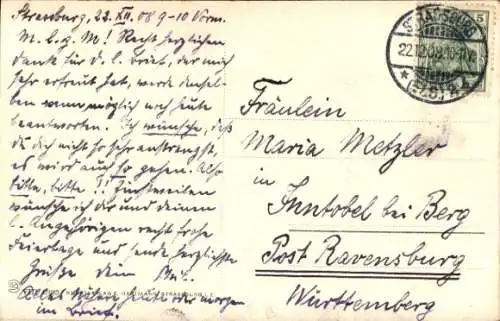 Strassburg, 22. XII. 08 9-10 Vorm.
M. l. g. M! Recht herzlichen
Dank für D. l. Brief, der mich
sehr erfreut hat, werde densel-
ben wenn möglich noch heute
beantworten. Ich wünsche, daß
du dich nicht so sehr anstrengst,
es wird auch so gehen. Also
bitte, bitte!! Zuweilen
wünsche ich dir und deinen
l. Angehörigen recht frohe
Feiertage und sende herzlichste
Grüße dein
Alles Nähere heute oder morgen
im Brief.
STRASSBURG
22.12.08 10-11V.
* (ELS) 2 *
5
Fräulein
Maria Metzler
in
Inntobel bei Berg
Post Ravensburg
Württemberg